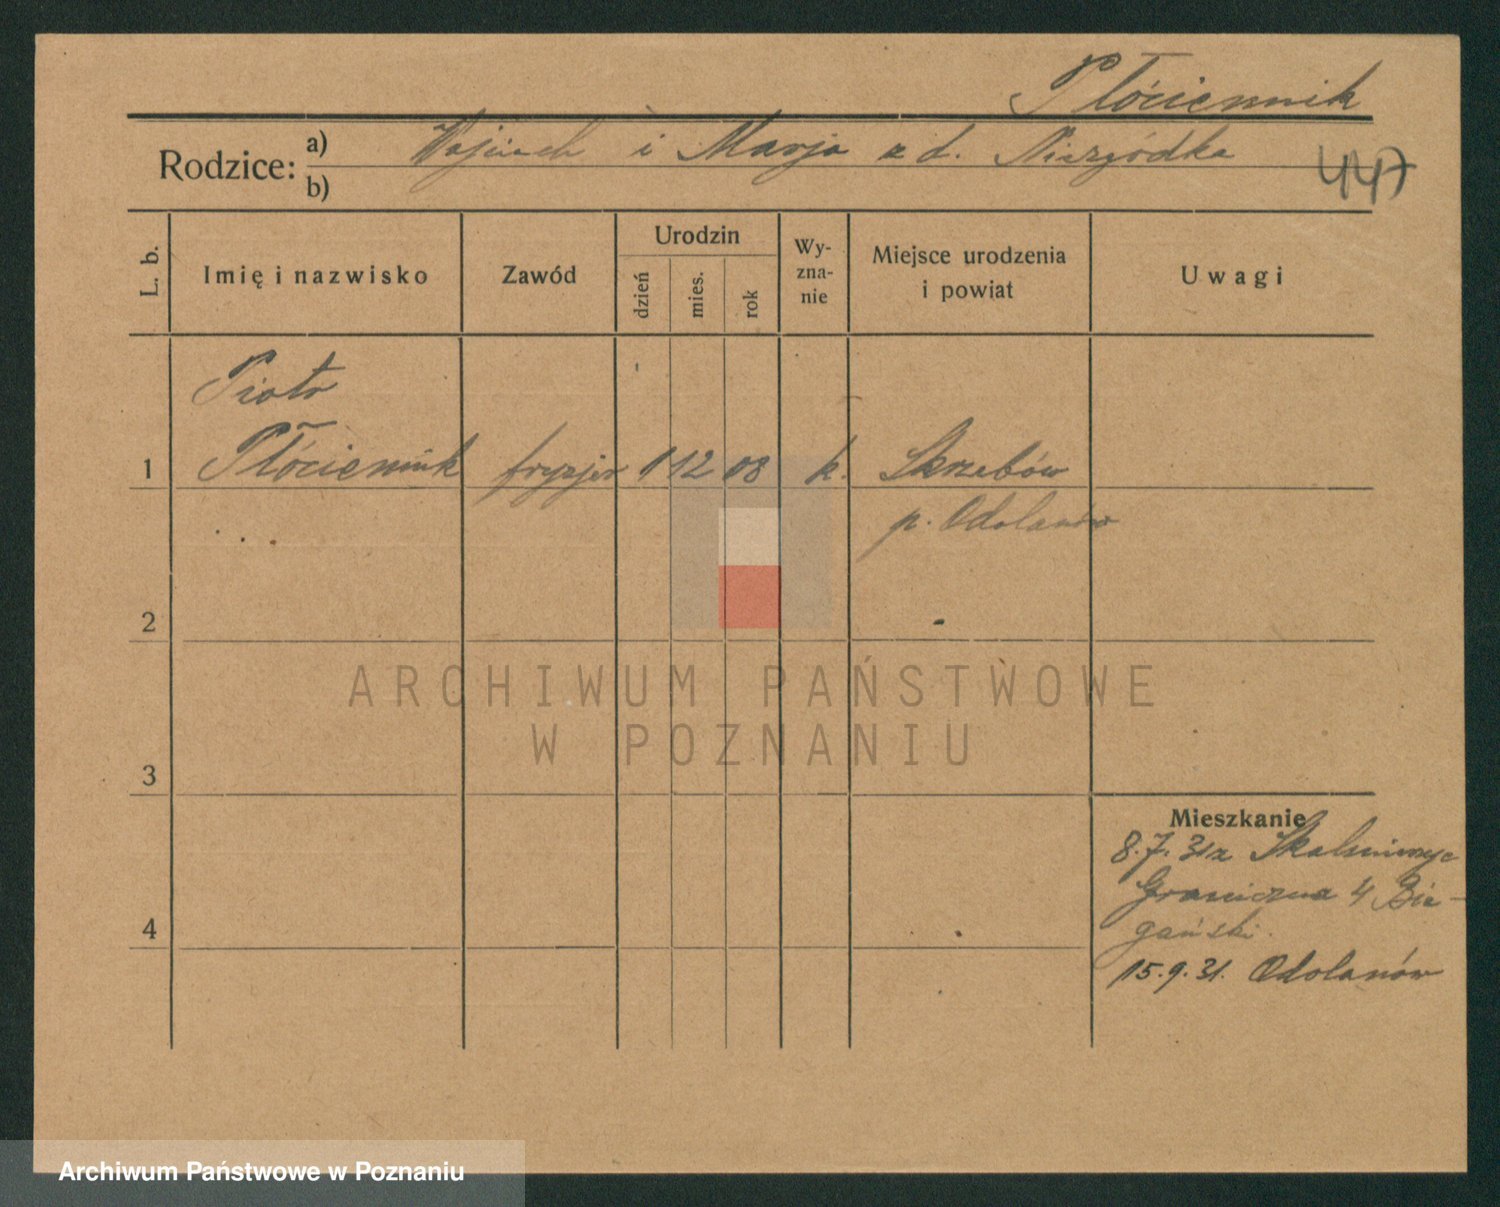 Płóciennik
Rodzice: a) Wojciech i Marja z d. Niezgódka
b)
447
L. b.
Imię i nazwisko
Zawód
Urodzin
dzień
mies.
rok
Wy-
zna-
nie
Miejsce urodzenia
i powiat
Uwagi
Piotr
1 Płóciennik fryzjer 1 12 08 k. Skrzebów
p. Odolanów
2
3
4
ARCHIWUM PAŃSTWOWE
W POZNANIU
Mieszkanie
8.7.31 z Skalmierzyc
Graniczna 4 Bie-
gański.
15.9.31. Odolanów
Archiwum Państwowe w Poznaniu